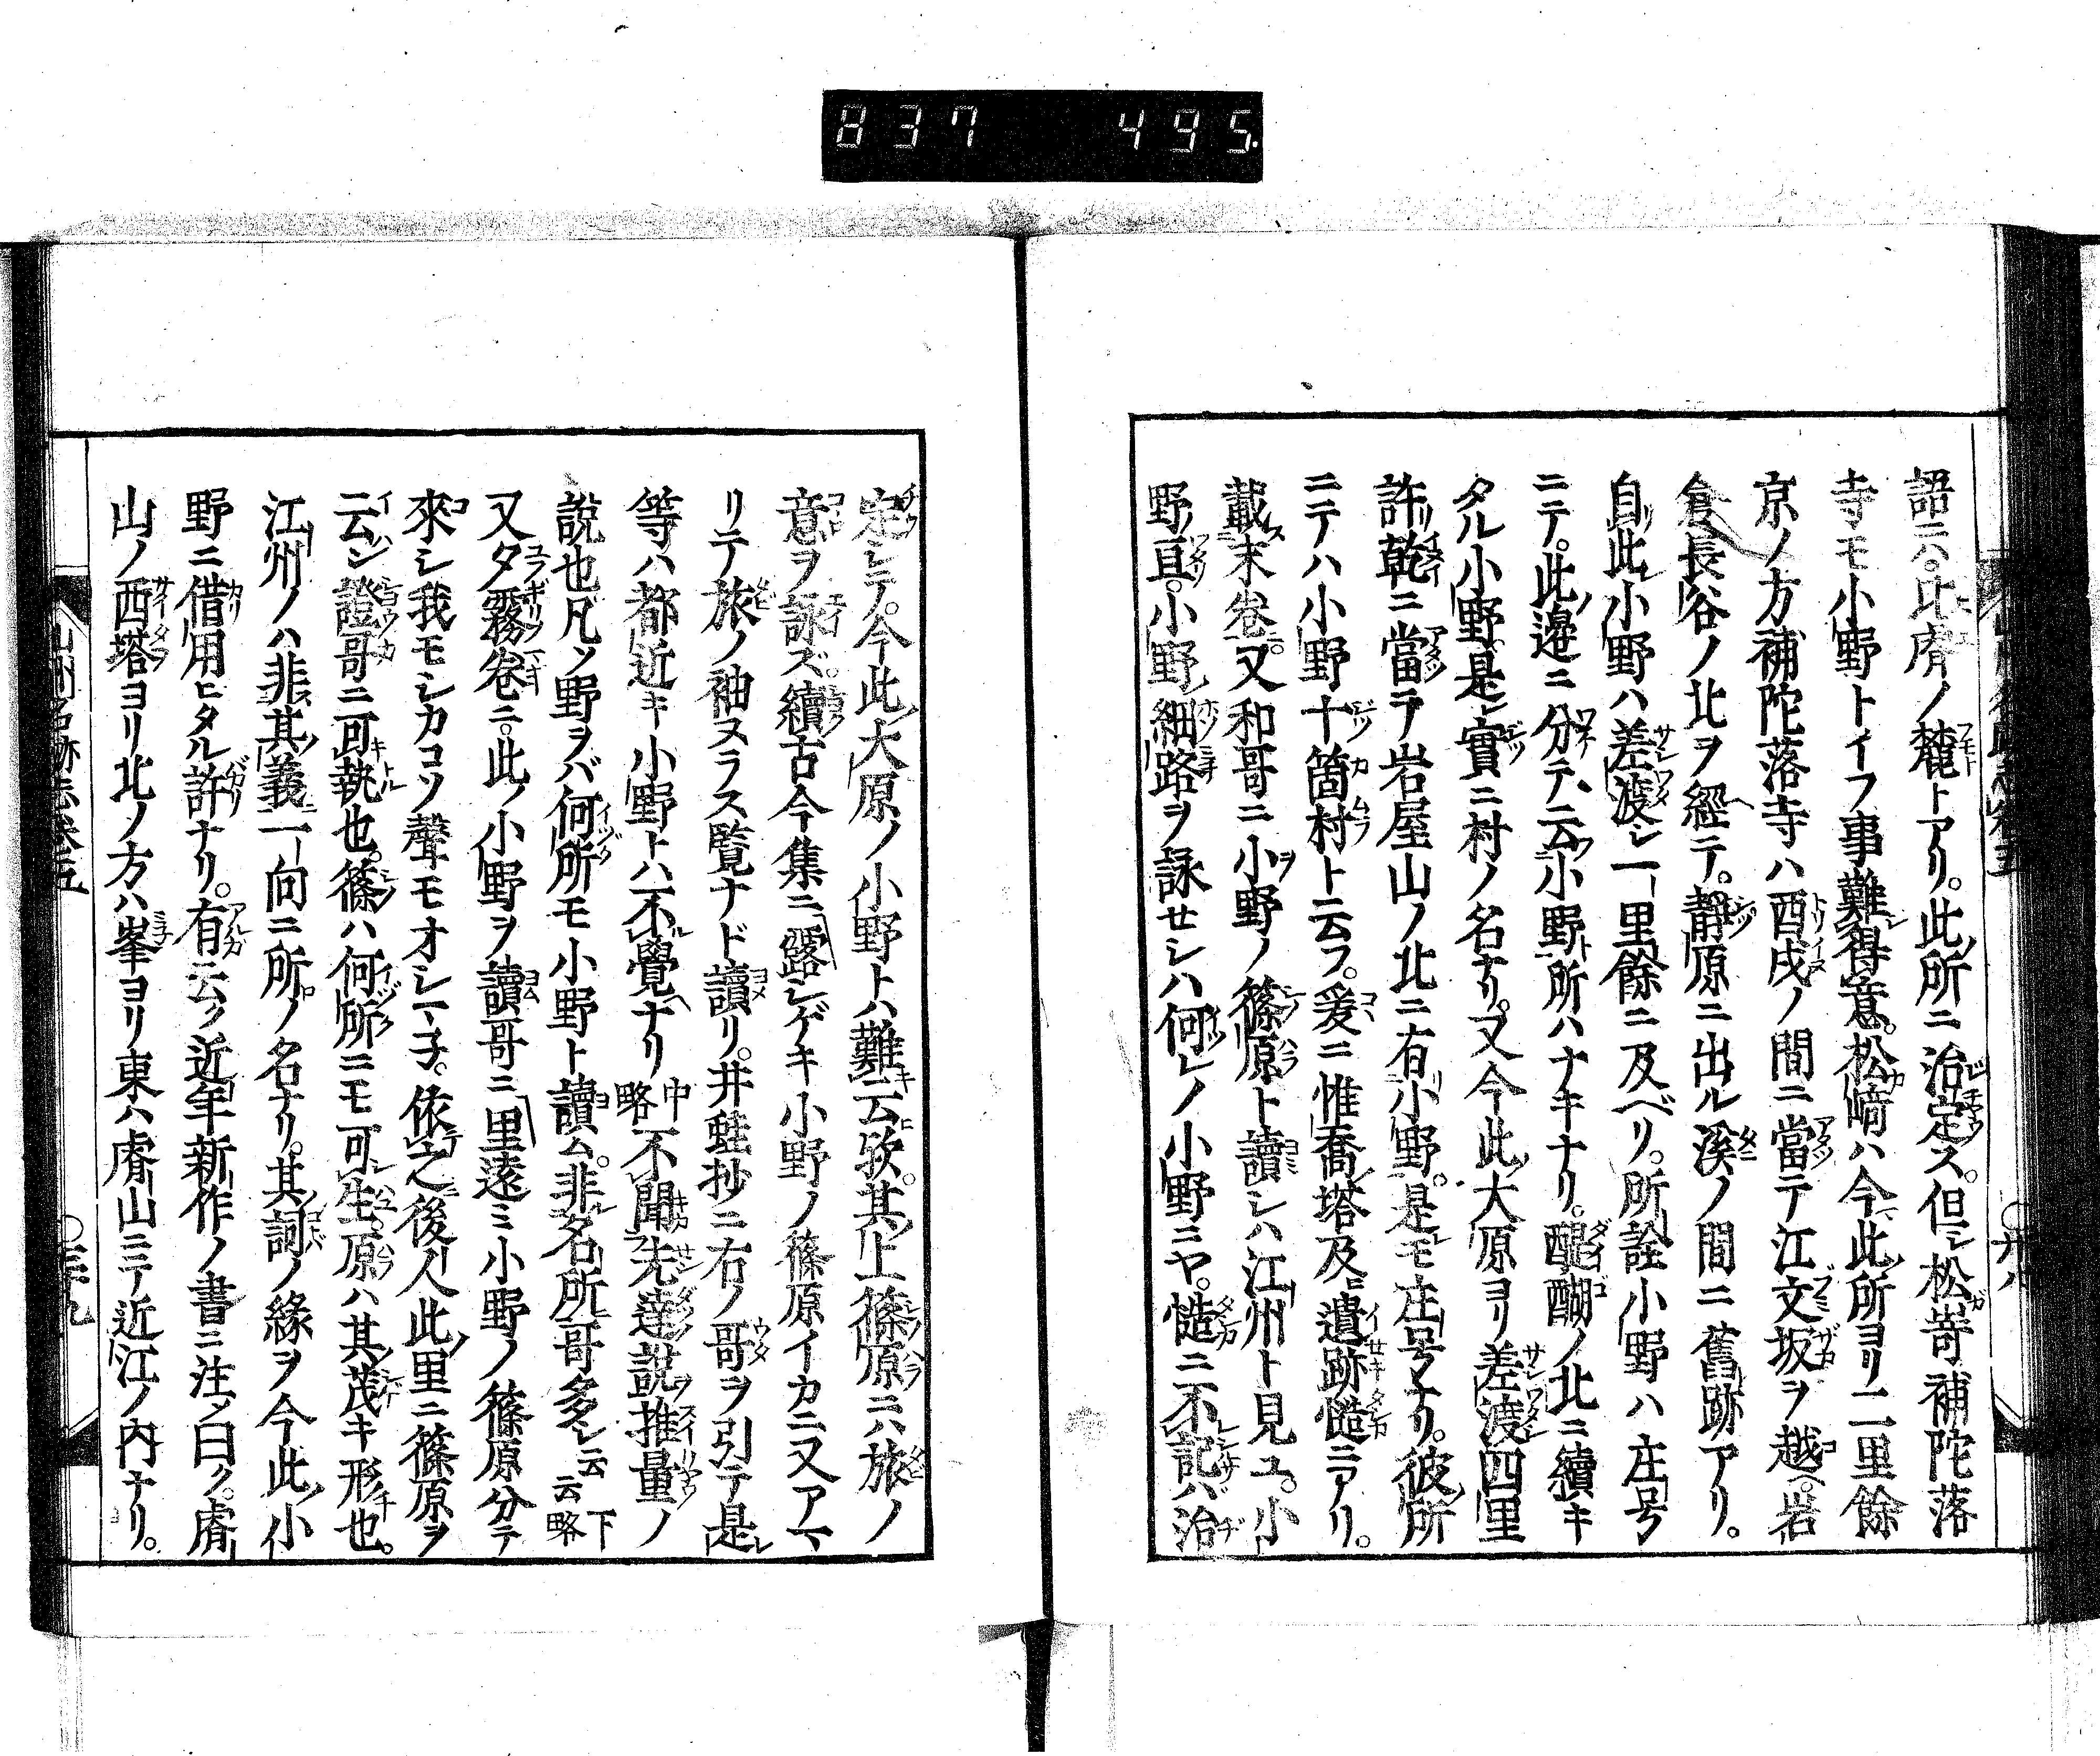 837 495.
語ニハ。比睿ノ麓トアリ。此所ニ治定ス。但シ松嵜補陀落
寺モ小野トイフ事難得意。松﨑ハ今此所ヨリ二里餘
京ノ方補陀落寺ハ酉戌ノ間ニ當テ江文坂ヲ越ヘ。岩
倉長谷ノ北ヲ經テ。靜原ニ出ル溪ノ間ニ舊跡アリ。
自此小野ハ差渡シ一里餘ニ及ベリ。所詮小野ハ庄号
ニテ。此邉ニ分テ云小野ト所ハナキナリ。醍醐ノ北ニ續キ
タル小野。是ニ實ニ村ノ名ナリ。又今此大原ヨリ差渡四里
許リ乾ニ當テ岩屋山ノ北ニ有小野。是モ庄号ナリ。彼所
ニテハ小野十箇村ト云フ。爰ニ惟喬塔及ヒ遺跡慥ニアリ。
載ス末卷ニ。又和哥ニ小野ノ篠原ト讀シハ江州ト見ユ。小
野ノ亘。小野ノ細路ヲ詠セシハ何レノ小野ニヤ。慥ニ不記ハ治
定シテ。今此大原ノ小野トハ難云歟。其上篠原ニハ旅ノ
意ヲ詠ズ。續古今集ニ露シゲキ小野ノ篠原イカニ又アマ
リテ旅ノ袖ヌラス覽ナド讀リ。井蛙抄ニ右ノ哥ヲ引テ是
等ハ都近キ小野トハ不覺ナリ中略不聞先達說推量ノ
說也凡ソ野ヲバ何所モ小野ト讀ム。非名所哥多シ云云下略
又夕霧卷ニ。此ノ小野ヲ讀哥ニ里遠ミ小野ノ篠原分テ
來シ我モシカコソ聲モオシマ子。依之後人此里ニ篠原ヲ
云ン證哥ニ可執也。篠ハ何所ニモ可生。原ハ其茂キ形也。
江州ノハ非其義一向ニ所ノ名ナリ。其詞ノ緣ヲ今此小
野ニ借用ヒタル許ナリ。有云ク近年新作ノ書ニ注メ曰ク。睿
山ノ西塔ヨリ北ノ方ハ峯ヨリ東ハ睿山ニテ近江ノ内ナリ。